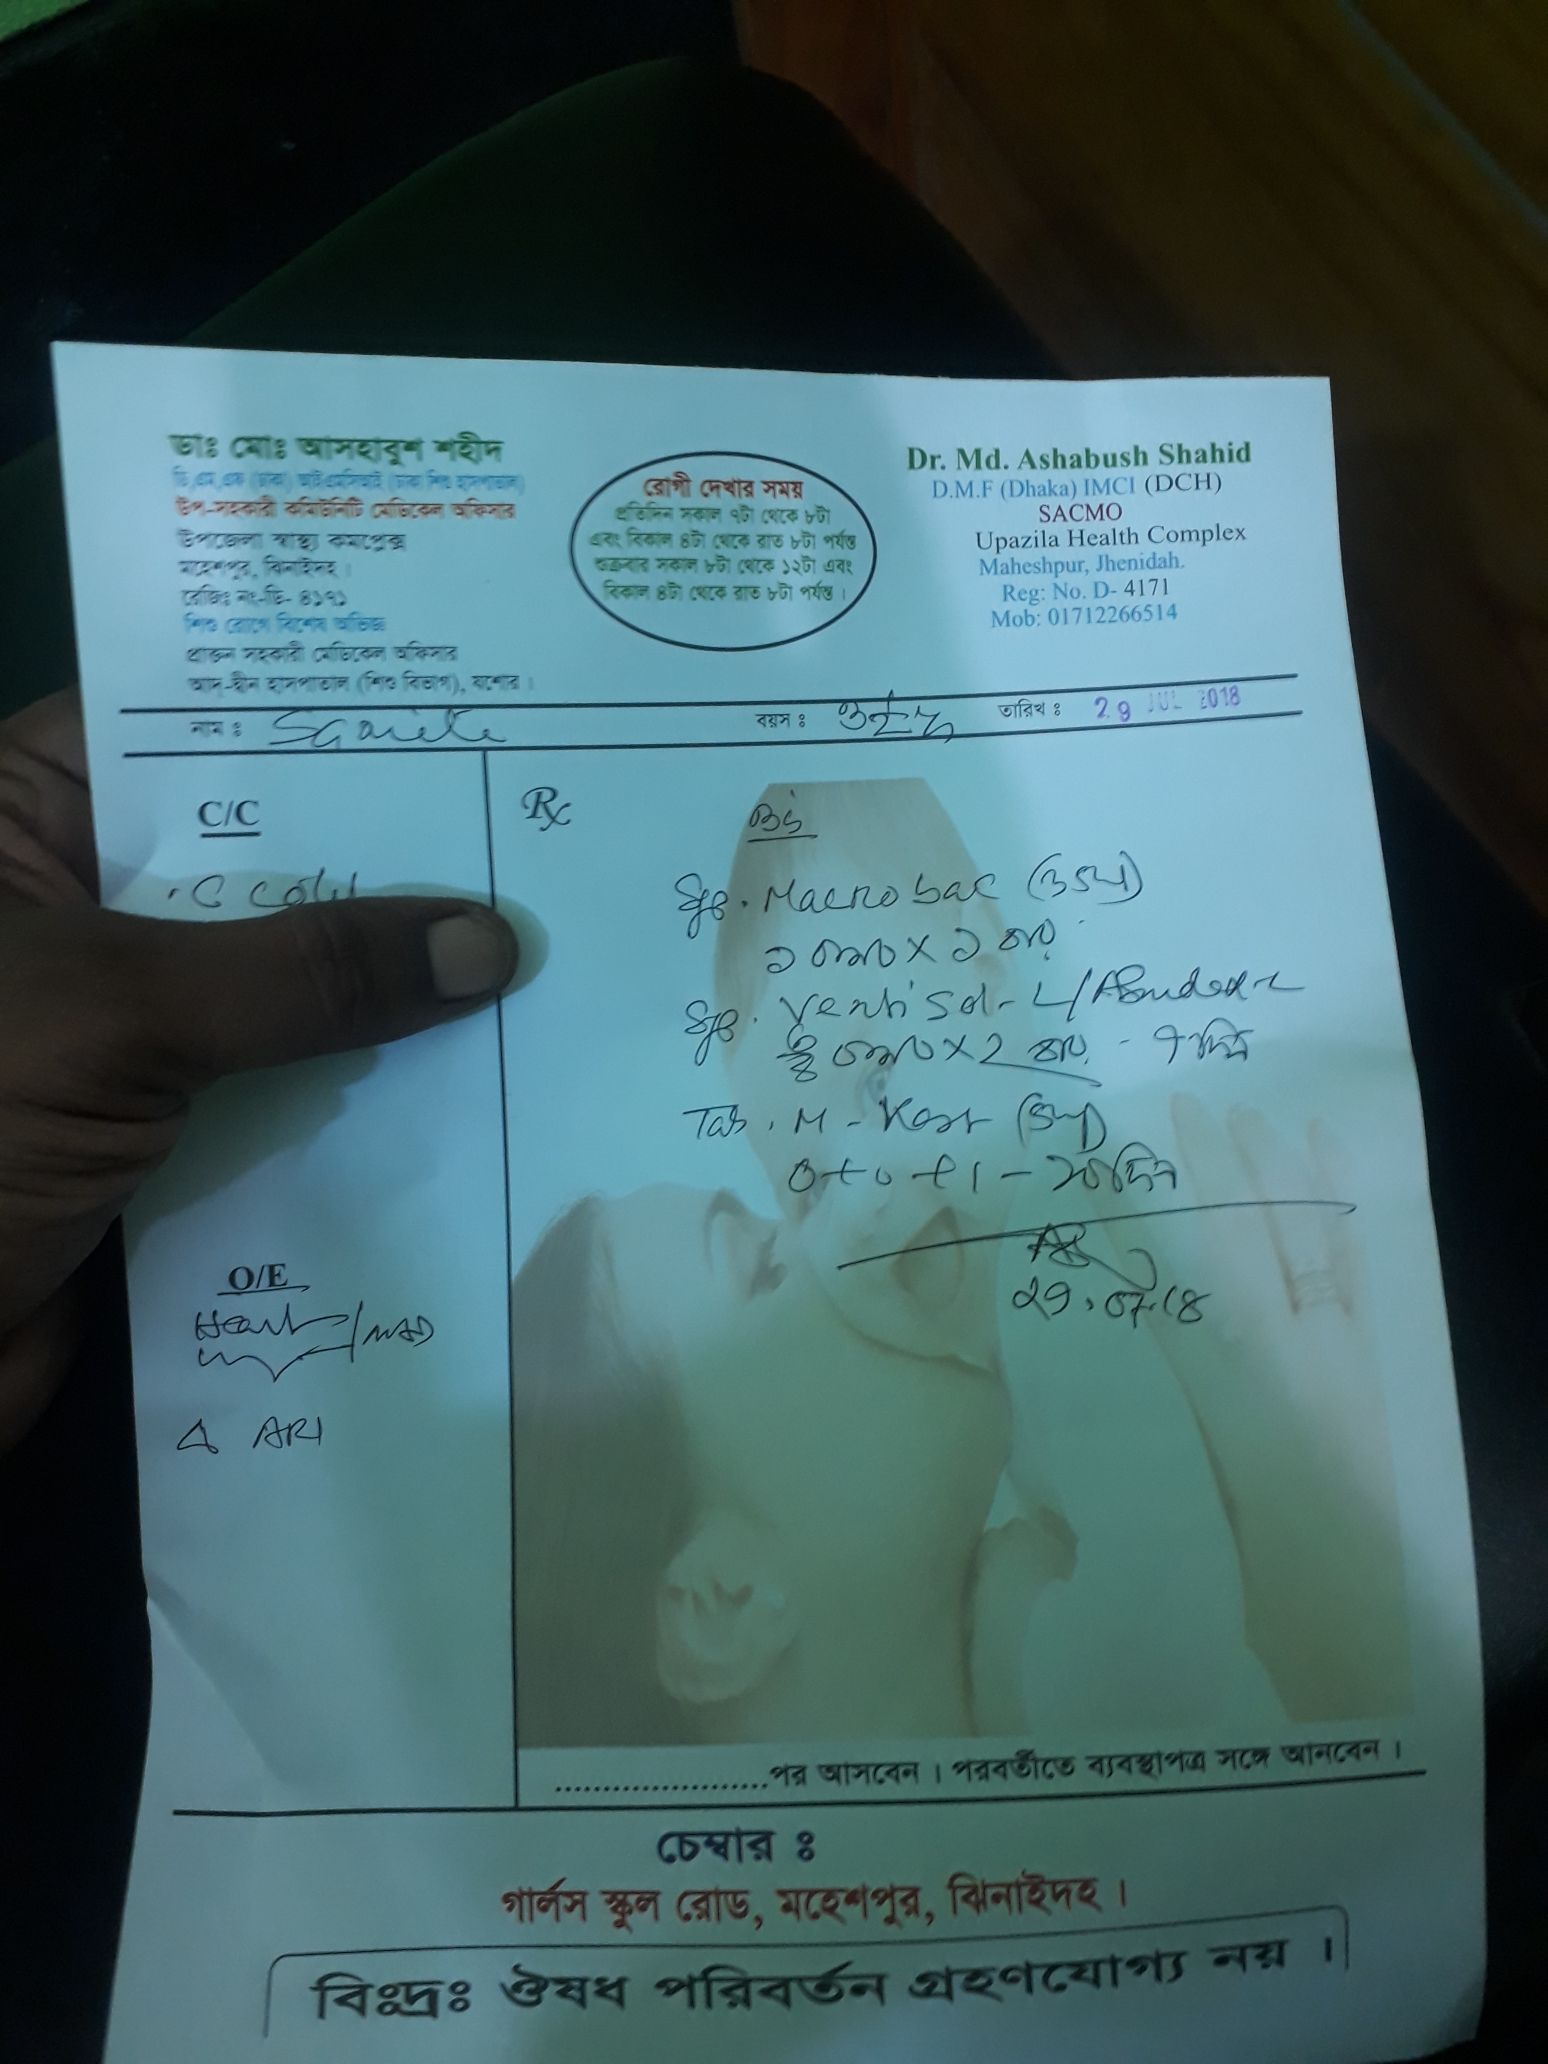 ডাঃ মোঃ আসহাবুশ শহীদ
ডি,এম,এফ (ঢাকা) আইএমসিআই (ঢাকা শিশু হাসপাতাল)
উপ-সহকারী কমিউনিটি মেডিকেল অফিসার
উপজেলা স্বাস্থ্য কমপ্লেক্স
মহেশপুর, ঝিনাইদহ।
রেজিঃ নং-ডি- ৪১৭১
শিশু রোগে বিশেষ অভিজ্ঞ
প্রাক্তন সহকারী মেডিকেল অফিসার
আদ-দ্বীন হাসপাতাল (শিশু বিভাগ), যশোর।
রোগী দেখার সময়
প্রতিদিন সকাল ৭টা থেকে ৮টা
এবং বিকাল ৪টা থেকে রাত ৮টা পর্যন্ত
শুক্রবার সকাল ৮টা থেকে ১২টা এবং
বিকাল ৪টা থেকে রাত ৮টা পর্যন্ত।
Dr. Md. Ashabush Shahid
D.M.F (Dhaka) IMCI (DCH)
SACMO
Upazila Health Complex
Maheshpur, Jhenidah.
Reg: No. D- 4171
Mob: 01712266514
নাম ঃ বয়স ঃ তারিখ ঃ 29 JUL 2018
C/C
Cold
O/E
Heart
ARI
Rx
Macrobac
১ চামচ × ১ বার
Ventisol-L
চামচ × 2 বার - ৭ দিন
Tab. M-Kast
0+0+1 - ২০ দিন
29.07.18
......................পর আসবেন। পরবর্তীতে ব্যবস্থাপত্র সঙ্গে আনবেন।
চেম্বার ঃ
গার্লস স্কুল রোড, মহেশপুর, ঝিনাইদহ।
বিঃদ্রঃ ঔষধ পরিবর্তন গ্রহণযোগ্য নয়।